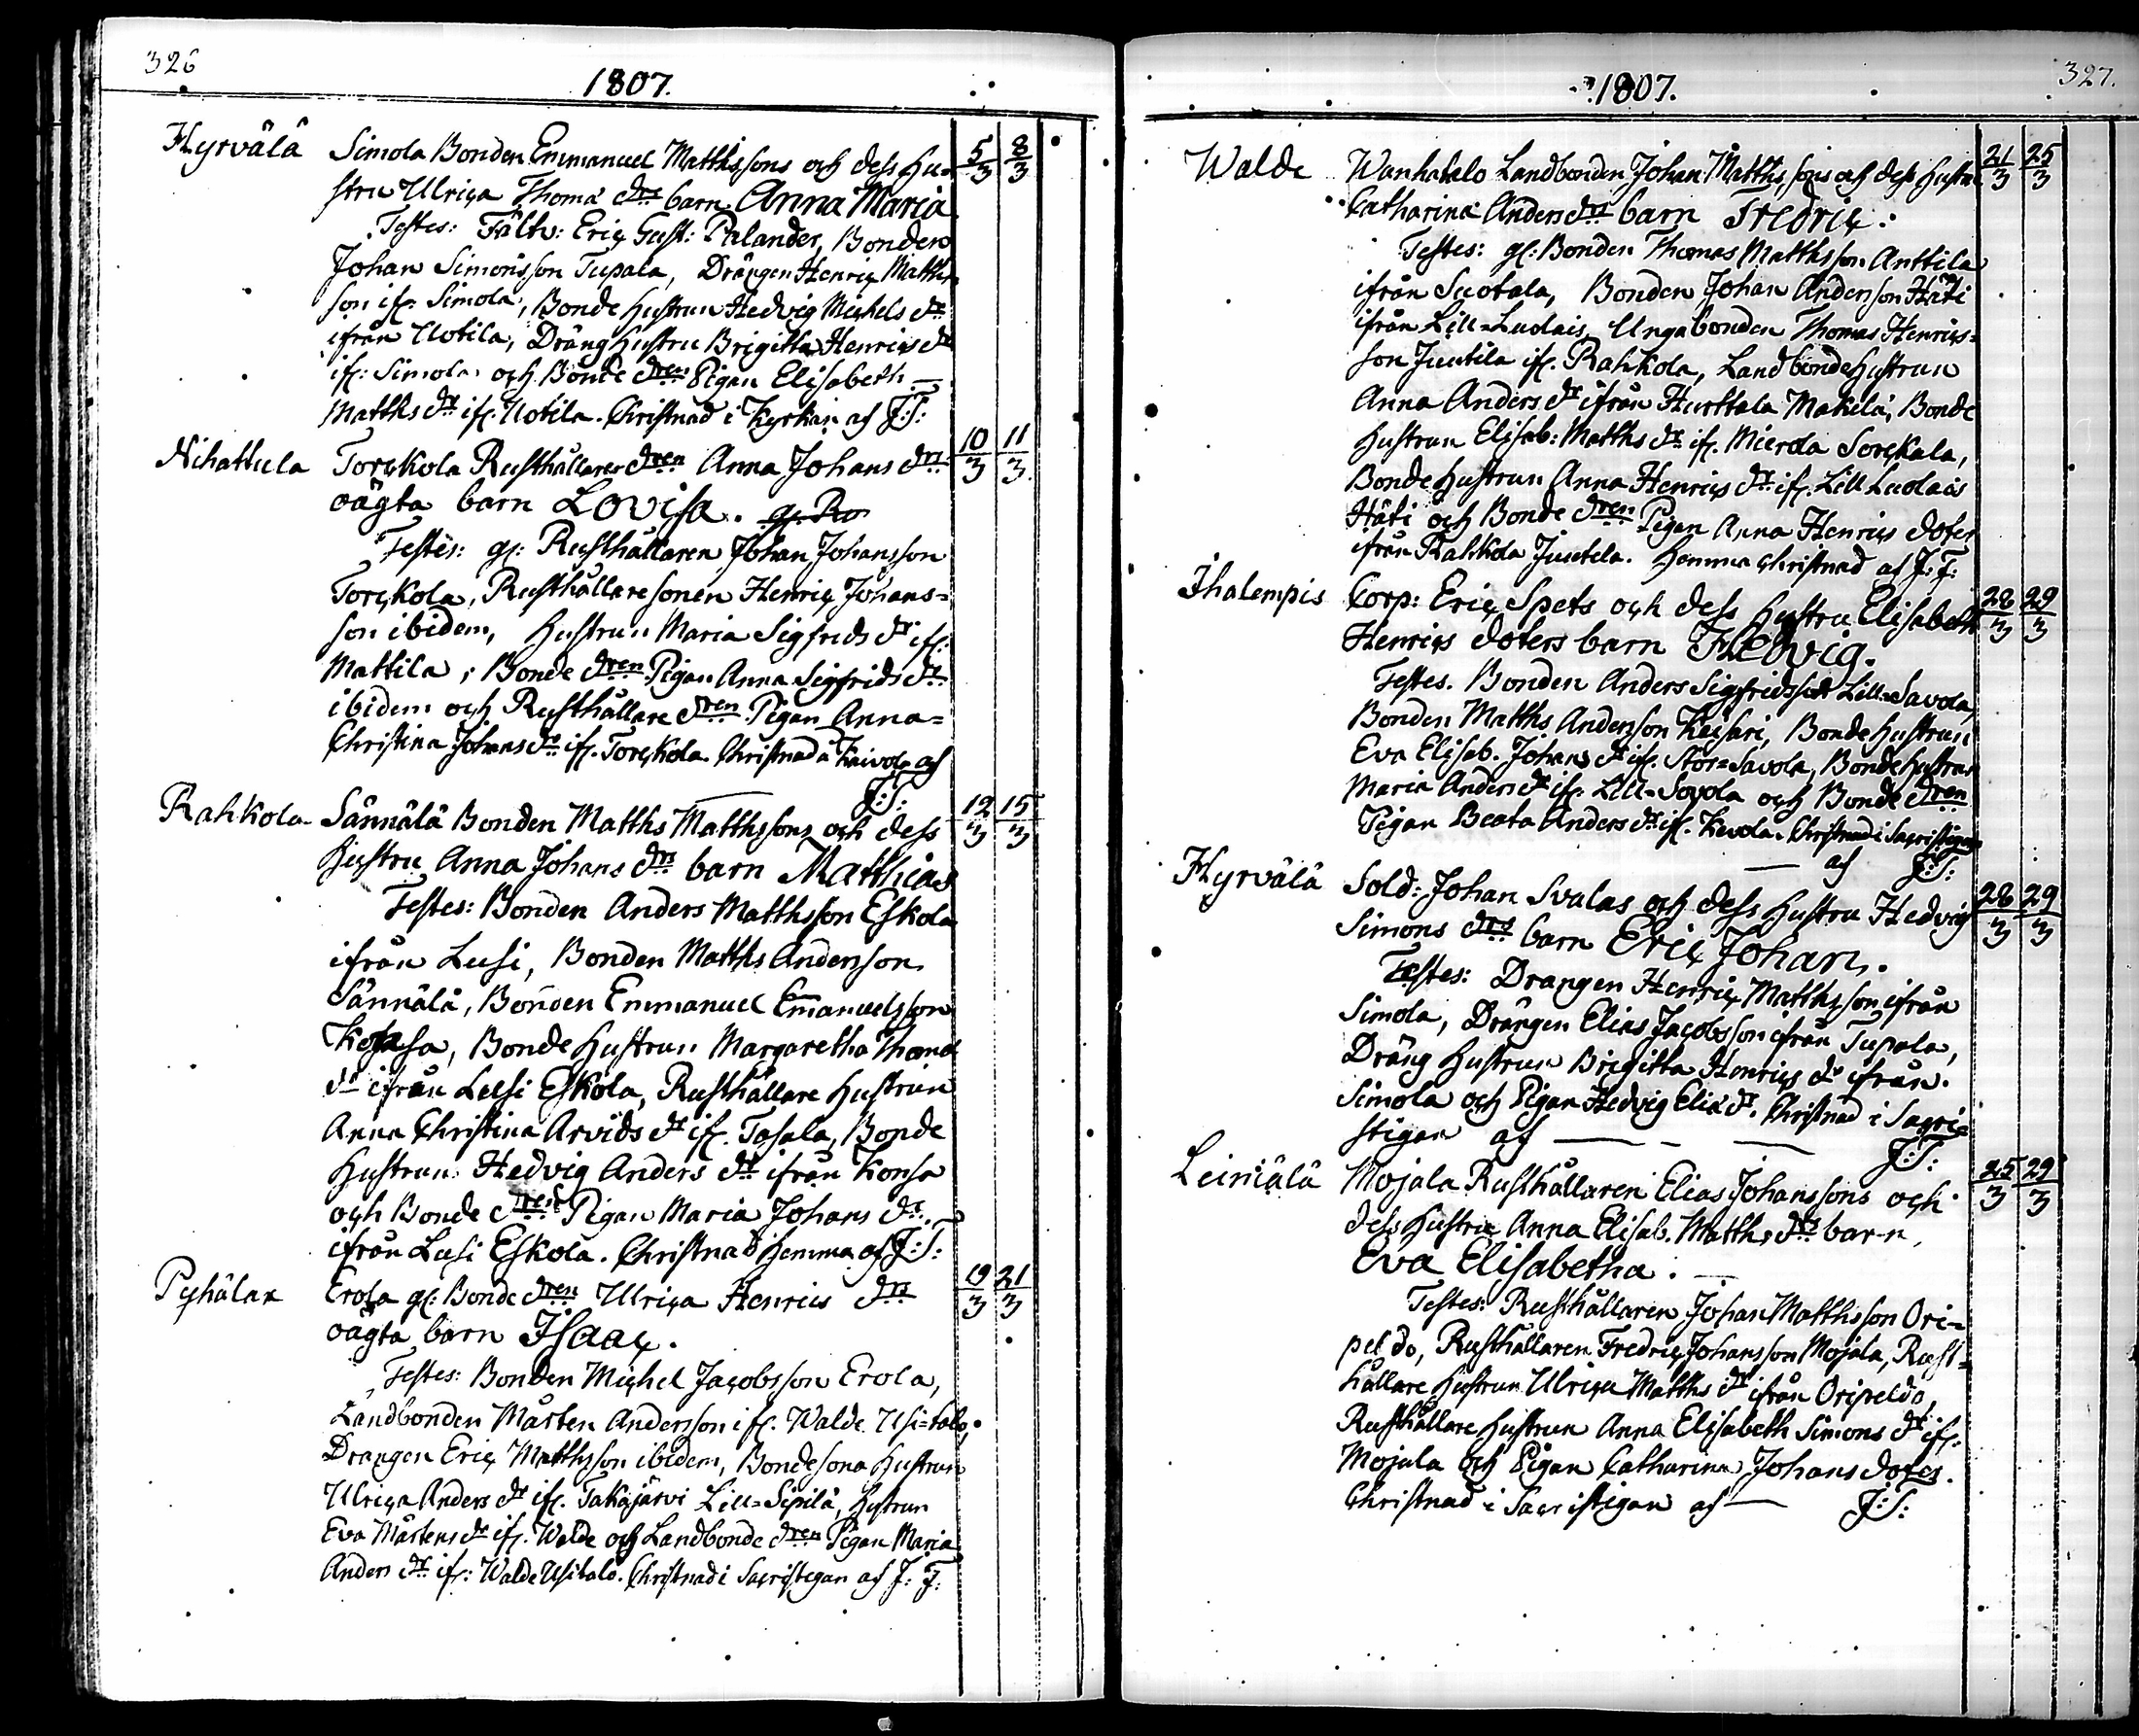 326
1807.
Hyrvälä Simola Bonden Emmanuel Matthssons och dess Hu= 5/3 8/3
stru Ulrica Thomæ drs barn Anna Maria
Testes: Fältv: Eric Gust: Palander, Bonden
Johan Simonsson Tupala, Drängen Henric Matths
son ifr. Simola, Bonde Hustrun Hedvig Michels dr
ifrån Uotila, Dräng Hustru Brigitta Henrics dr
ifr: Simola och Bonde dren Pigan Elisabeth
Matths dr ifr. Uotila. Christnad i Kyrkan af J:S:
Nihattula Torckola Rusthållare dren Anna Johans drs 10/3 11/3
oägta barn Lovisa.
Testes: gl: Rusthållaren Johan Johansson
Torckola, Rusthållare sonen Henric Johans=
son ibidem, Hustrun Maria Sigfrids dr ifr.
Mattila, Bonde dren Pigan Anna Sigfrids dr
ibidem och Rusthållare dren Pigan Anna=
Christina Johans dr ifr. Torckola. Christnad i Kaivola af
J:S:
Rahkola Sännälä Bonden Matths Matthssons och dess 12/3 15/3
Hustru Anna Johans drs barn Matthias
Testes: Bonden Anders Matthsson Eskola
ifrån Lusi, Bonden Matths Andersson
Sännälä, Bonden Emmanuel Emanuelsson
Bonde Hustrun Margaretha Thomæ
dr ifrån Lusi Eskola, Rusthållare Hustrun
Anna Christina Arvids dr ifr. Tasala, Bonde
Hustrun Hedvig Anders dr ifrån Konsa
och Bonde dren Pigan Maria Johans dr.
ifrån Lusi Eskola. Christnad Hemma af J:S:
Pyhälax Erola gl: Bonde dren Ulrica Henrics drs 19/3 21/3
oägta barn Isaac.
Testes: Bonden Michel Jacobsson Erola,
Landbonden Mårten Andersson ifr. Walde Usi=talo,
Drangen Eric Matthsson ibidem, Bondesona Hustrun
Ulrica Anders dr ifr. Takajärvi Lill=Sipilä, Hustrun
Eva Mårtens dr ifr. Walde och Landbonde dren Pigan Maria
Anders dr ifr: Walde Usitalo. Christnad i Sacristigan af J: F:
1807.
327.
Walde Wanhatalo Landbonden Johan Matthssons och dess Hustru 21/3 25/3
Catharina Anders drs barn Fredric.
Testes: gl: Bonden Thomas Matthsson Anttila
ifrån Suotala, Bonden Johan Andersson Häti
ifrån Lill=Ludais, Unga bonden Thomas Henrics=
son Juutila ifr. Rahkola, Landbonde Hustrun
Anna Anders dr ifrån Hurttala Makelä, Bonde
Hustrun Elisab: Matths dr ifr. Mierola Sorckala,
Bonde Hustrun Anna Henrics dr ifr. Lill Ludais
Häti och Bonde dren Pigan Anna Henrics doter
ifrån Rahkola Juutela. Hemma Christnad af J: F:
Ihalempis Corp: Eric Spets och dess Hustru Elisabeth 28/3 29/3
Henrics doters barn Hedvig.
Testes. Bonden Anders Sigfridsson Lill=Savola,
Bonden Matths Andersson Keisari, Bonde Hustrun
Eva Elisab. Johans dr ifr. Stor=Savola, Bonde Hustrun
Maria Anders dr ifr. Lill=Savola och Bonde dren
Pigan Beata Anders dr ifr. Kevola. Christnad i Sacristigan
af J:S:
Hyrvälä Sold: Johan Svalas och dess Hustru Hedvig 28/3 29/3
Simons drs barn Eric Johan.
Testes: Drangen Henric Matthsson ifrån
Simola, Drängen Elias Jacobsson ifrån Tupala,
Dräng Hustrun Brigitta Henrics dr ifrån
Simola och Pigan Hedvig Eliæ dr. Christnad i Sacri=
stigan af J:S:
Leiniälä Mojala Rusthållaren Elias Johanssons och 25/3 29/3
dess Hustru Anna Elisab. Matths drs barn,
Eva Elisabetha.
Testes: Rusthållaren Johan Matthsson Ori=
peldo, Rusthållaren Fredric Johansson Mojala, Rust=
hållare Hustrun Ulrica Matths dr ifrån Oripeldo,
Rusthållare Hustrun Anna Elisabeth Simons dr ifr.
Mojala och Pigan Catharina Johans doter.
Christnad i Sacristigan af J:S: